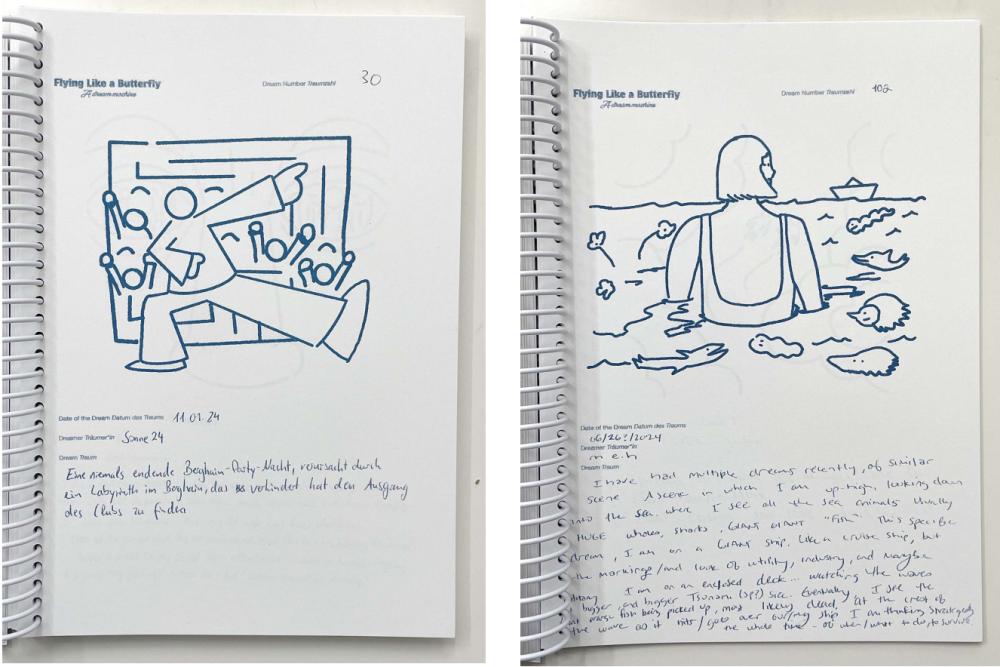 Flying Like a Butterfly
A dream machine
Dream Number Traumzahl 30
Date of the Dream Datum des Traums 11.01.24
Dreamer Träumer*in Sonne 24
Dream Traum
Eine niemals endende Berghain-Party-Nacht, verursacht durch
ein Labyrinth im Berghain, das verhindert hat den Ausgang
des Clubs zu finden
Flying Like a Butterfly
A dream machine
Dream Number Traumzahl 102
Date of the Dream Datum des Traums
06/26?/2024
Dreamer Träumer*in
m e.h
Dream Traum
I have had multiple dreams recently, of similar
scene A scene in which I am up-high, looking down
into the sea. where I see all the sea animals Usually
HUGE whales, sharks, GIANT GIANT "Fish". This specific
dream, I am on a GIANT ship. Like a cruise ship, but
the markings/and look of utility, industry, and maybe
military I am on an enclosed deck... watching the waves
bigger, and bigger Tsunami (sp?) size. Eventually I see the
fish being picked up, most likely dead, at the crest of
the wave as it hits/goes over our/my ship I am thinking strategically
the whole time - of when/what to do, to survive.